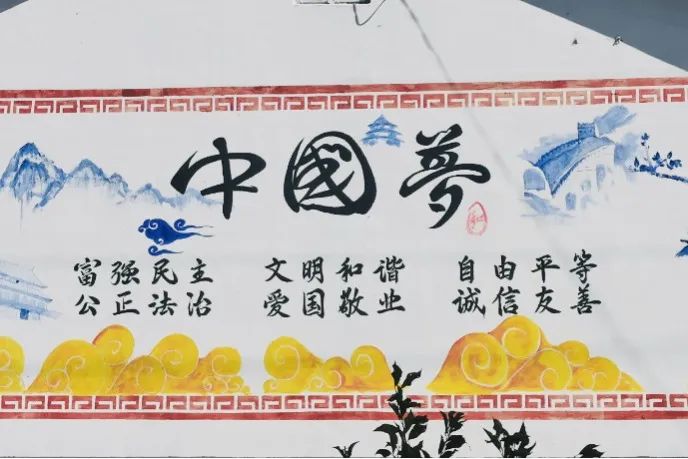 中國梦
富强民主 文明和谐 自由平等
公正法治 爱国敬业 诚信友善